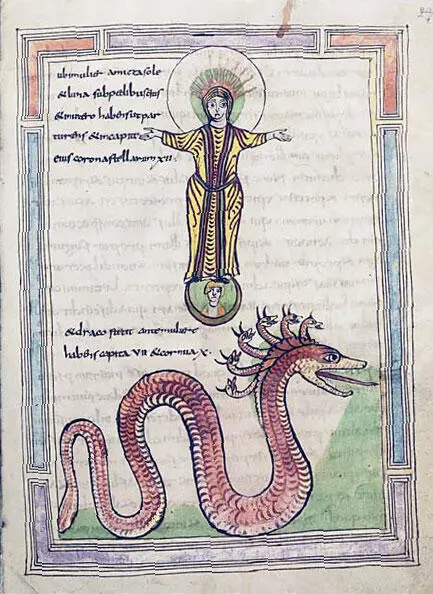 ubi mulier amicta sole
& luna sub pedibus eius
& in utero habens & par
turiens & in capite
eius corona stellarum xii
& draco stetit ante muliere
habens capita vii & cornua x.